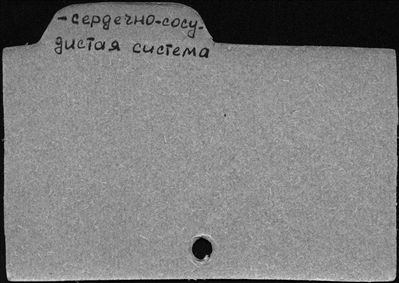 -сердечно-сосу-
дистая система